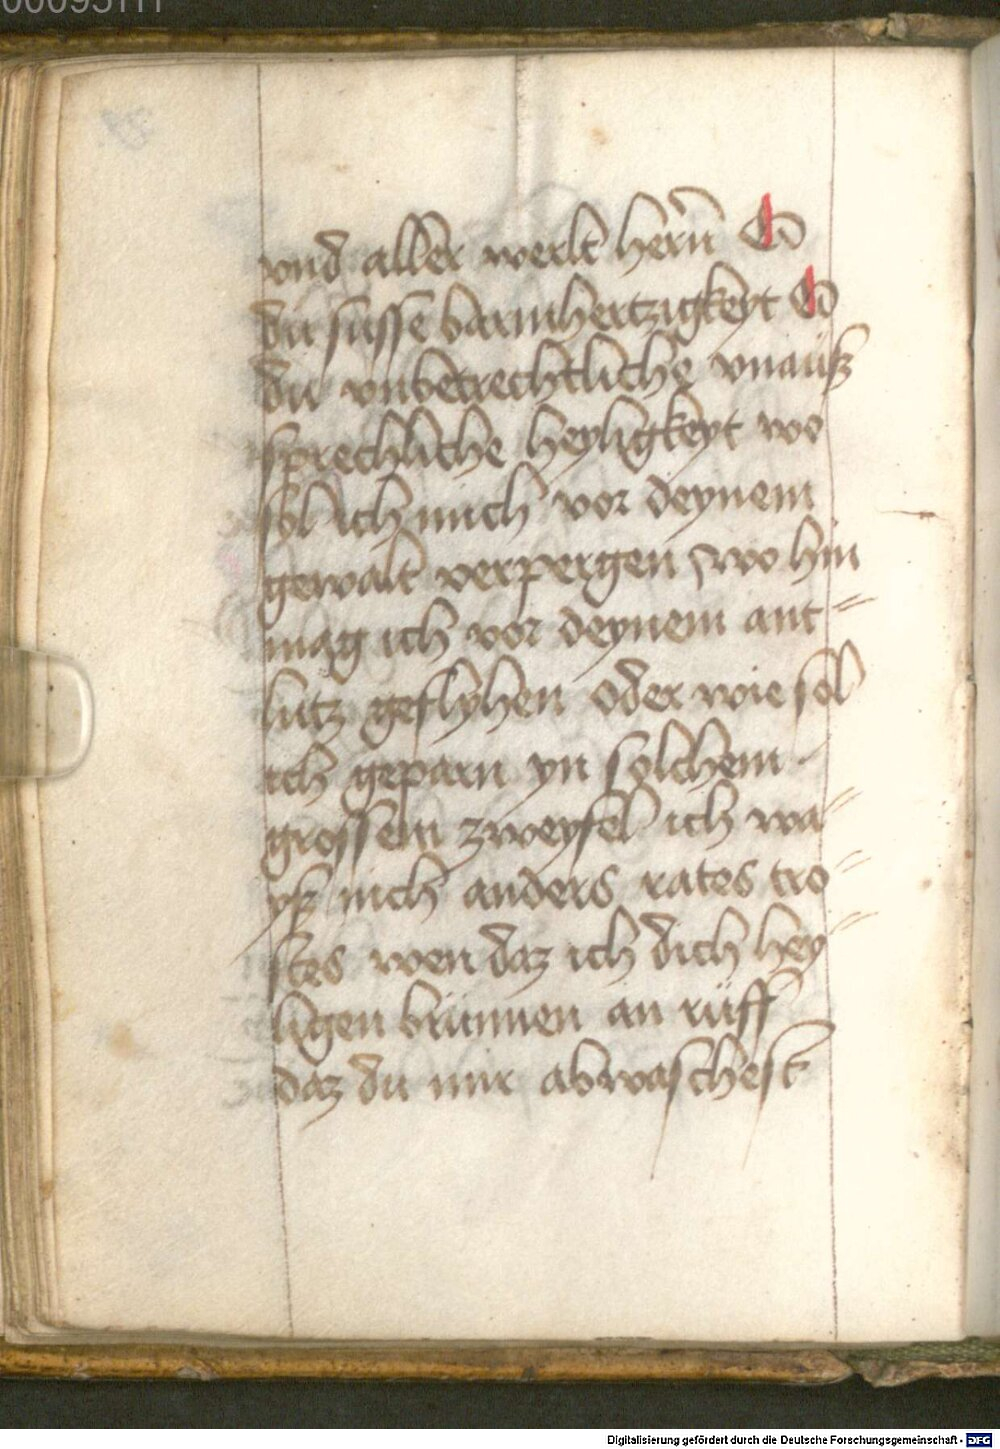 vnd aller werlt hern̄ O
du susse barmhertzigkeyt O
du vnbetrechtliche vnausz
sprechliche heyligkeyt wo
sol ich mich vor deynem
gewalt verpergen wo hin
mag ich vor deynem ant=
lutz geflyhen oder wie sol
ich geparn yn solchem
grossem zweyfel ich wa=
ysz nich anders rates tro=
stes wen daz ich dich hey=
ligen brunnen an rüff
daz du mir abwaschest
Digitalisierung gefördert durch die Deutsche Forschungsgemeinschaft - DFG